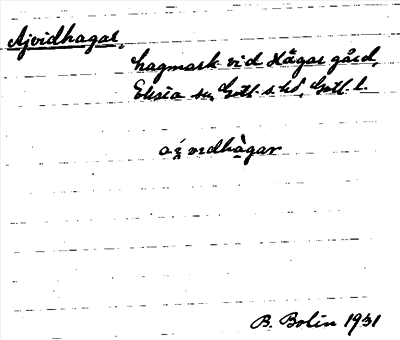 Ajvidhagar,
hagmark vid Hägar gård,
Eksta sn, Gotl. s. hd, Gotl. l.
aįvidhàgar
B. Bolin 1931